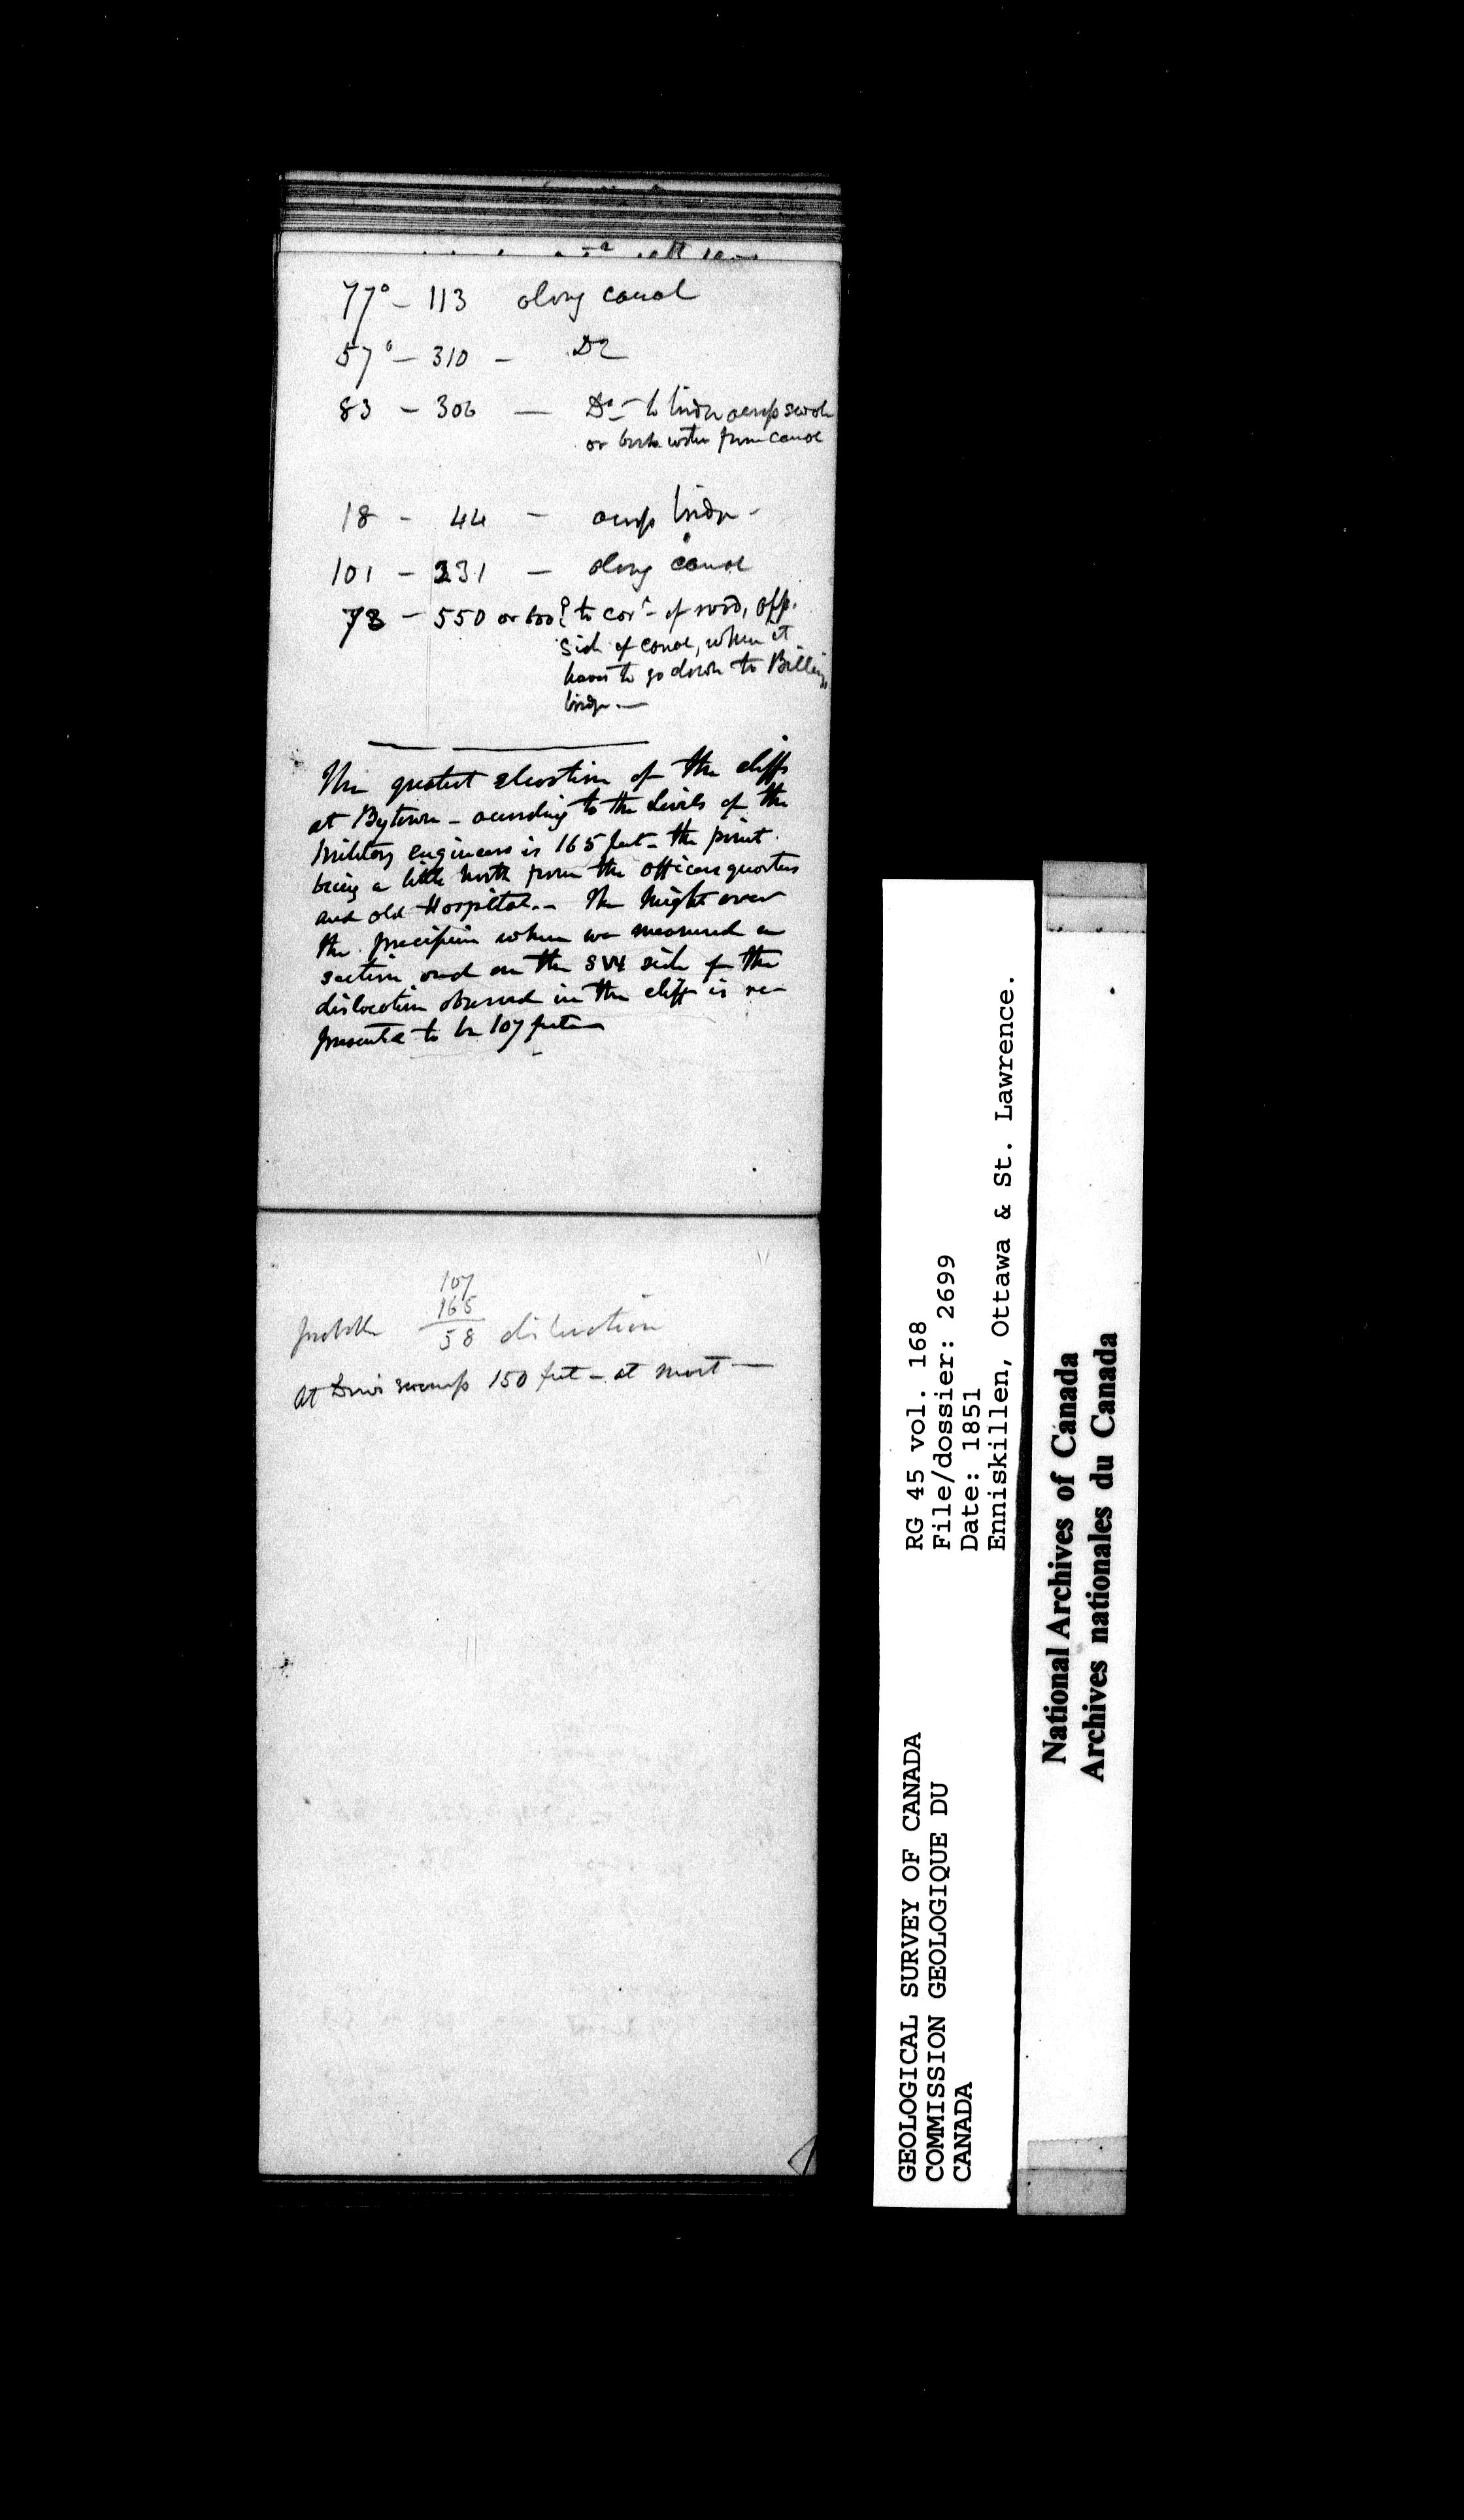 77° – 113 along canal
57° – 310 – Do
83 – 306 — Do – to bridge across swale
or back water from canal
18 – 44 – across bridge –
101 – 231 – along canal
78 – 550 or 600? to cor. of road, opp.
side of canal, where it
leaves to go down to Billings
bridge. —
The greatest elevation of the cliffs
at Bytown – according to the levels of the
military engineers is 165 feet – the point
being a little north from the officers quarters
and old Hospital. – The height over
the precipice where we measured a
section and on the SW side of the
dislocation observed in the cliff is re-
presented to be 107 feet —
107
165
probable 58 dislocation
At swamp 150 feet – at most —
RG 45 vol. 168
File/dossier: 2699
Date: 1851
Enniskillen, Ottawa & St. Lawrence.
GEOLOGICAL SURVEY OF CANADA
COMMISSION GEOLOGIQUE DU
CANADA
National Archives of Canada
Archives nationales du Canada